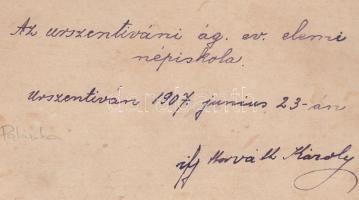 Az urszentiváni ág. ev. elemi
népiskola.
Urszentiván 1907 junius 23-án
ifj Horváth Károly